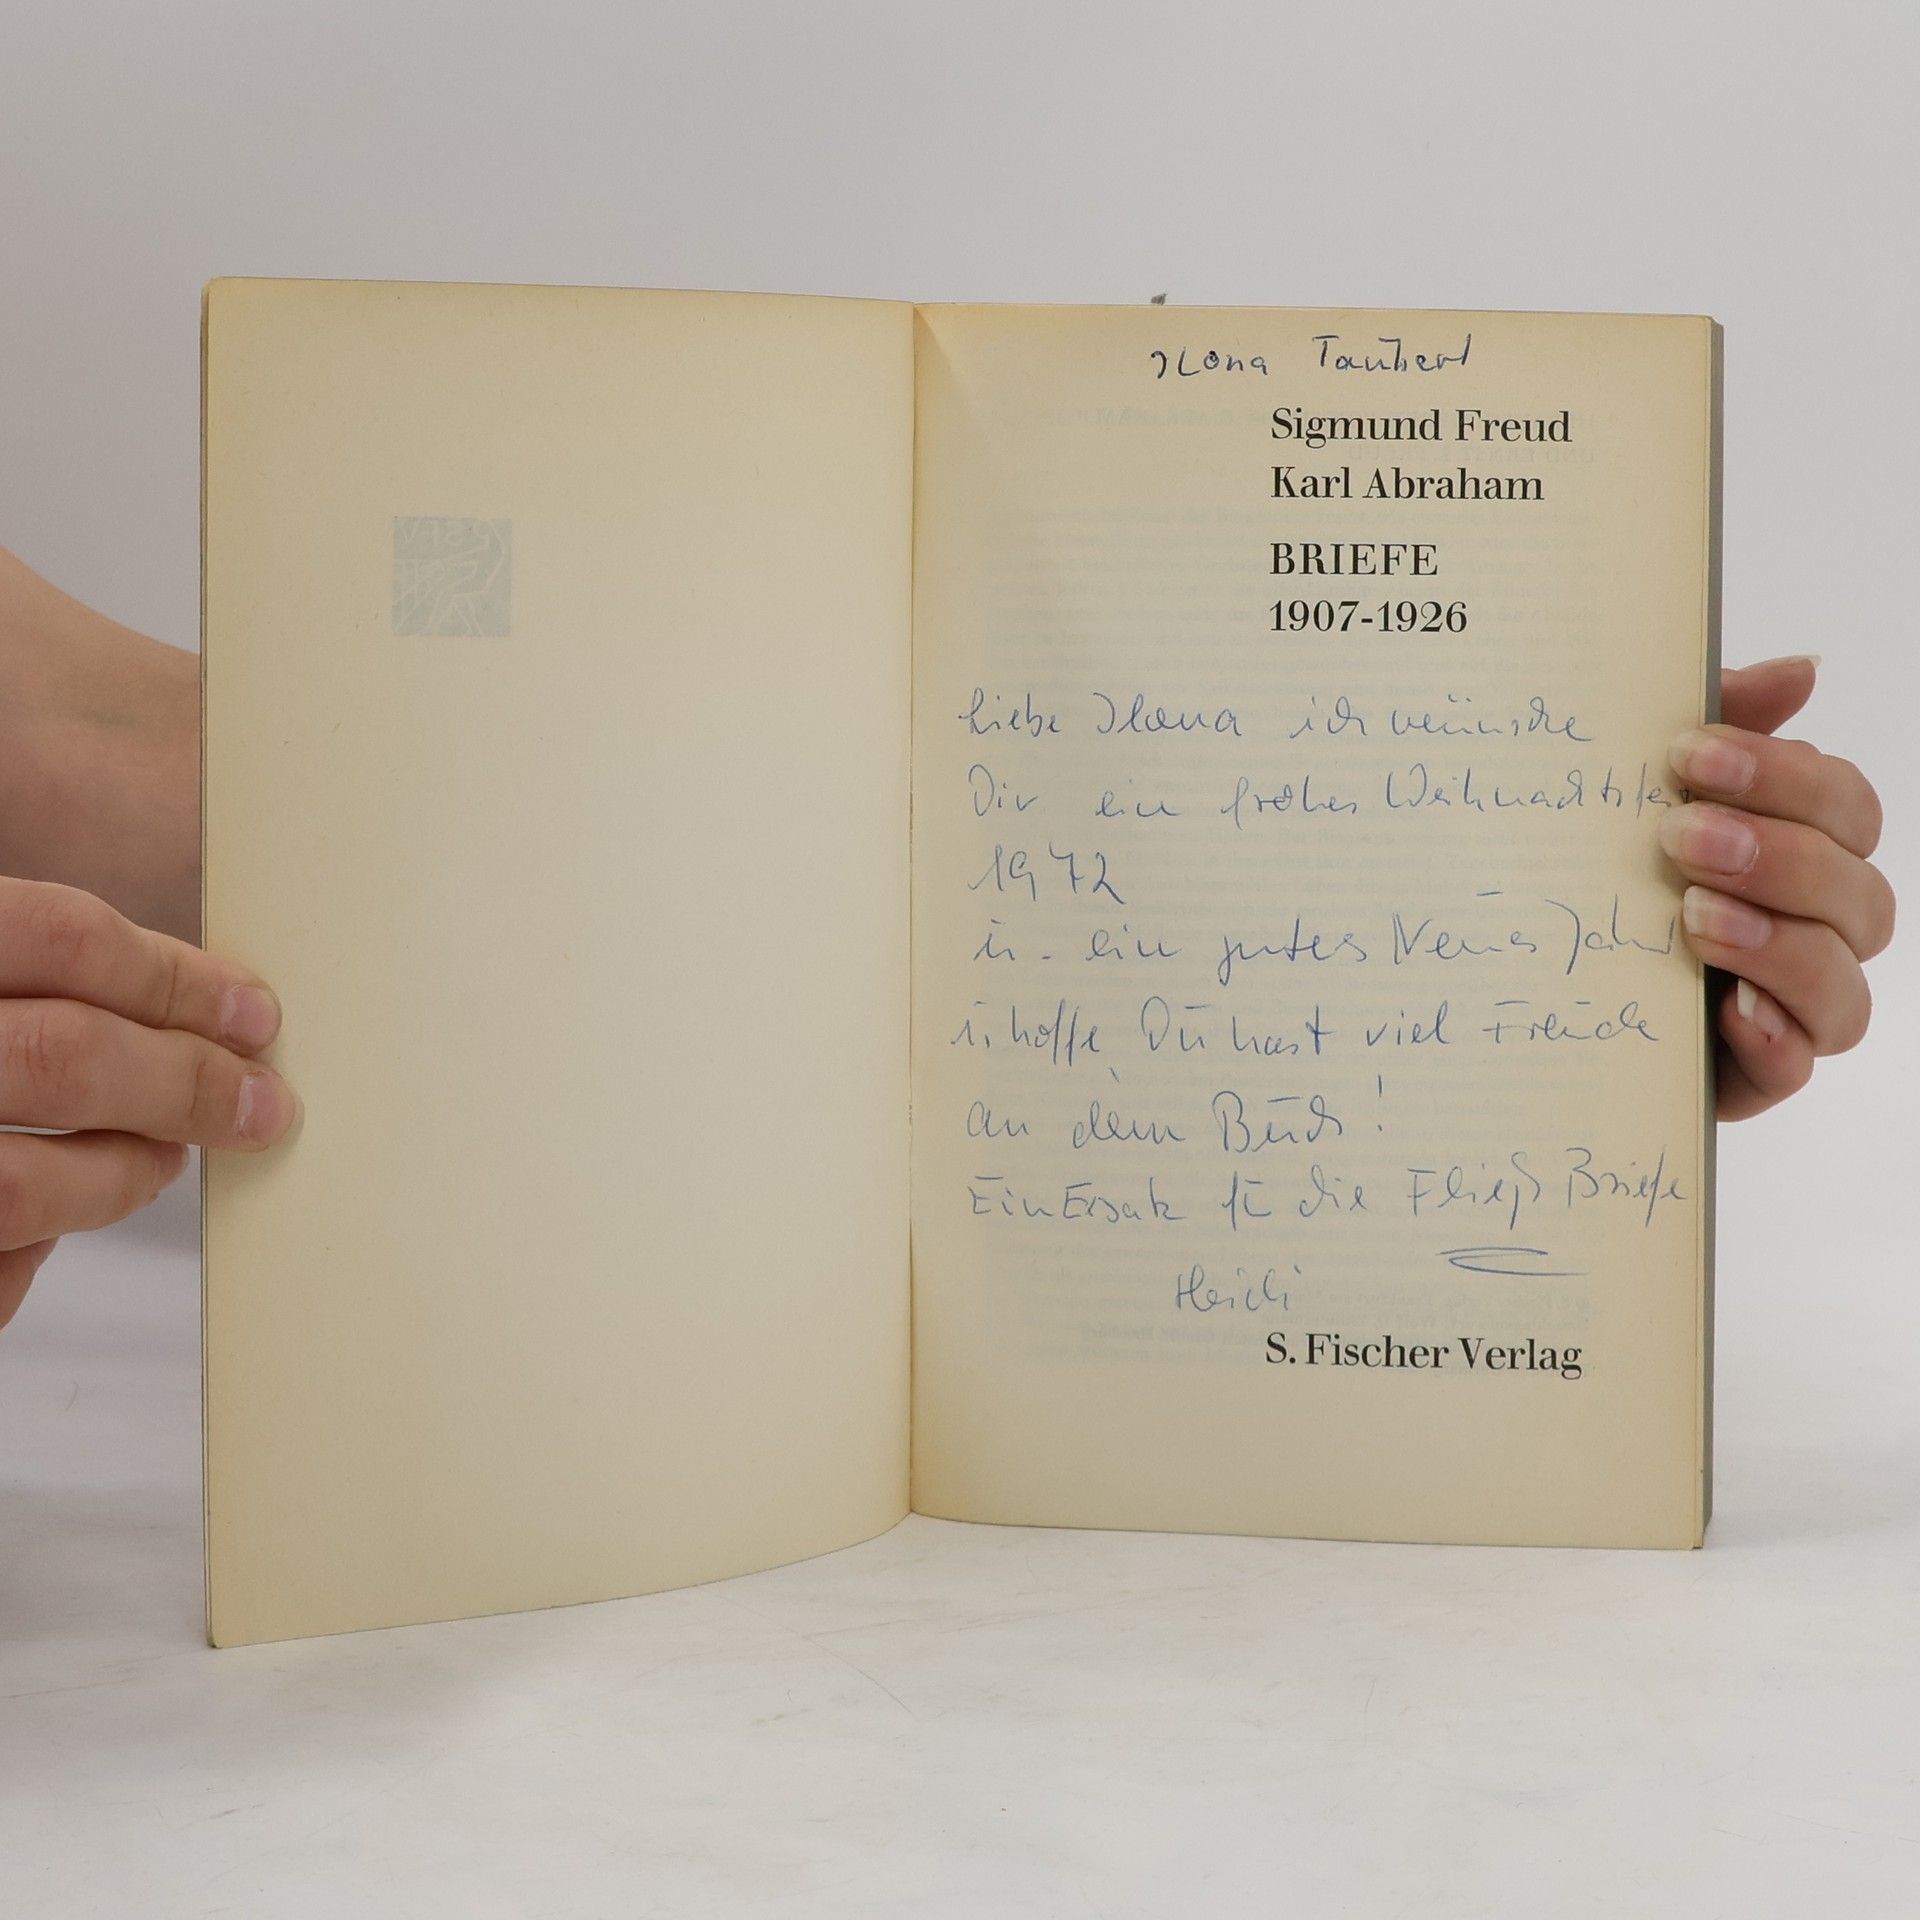 Ilona Taubert
Sigmund Freud
Karl Abraham
BRIEFE
1907-1926
Liebe Ilona ich wünsche
Dir ein frohes Weihnachtsfest
1972
u. ein gutes Neues Jahr
u. hoffe Du hast viel Freude
an dem Buch!
Ein Ersatz für die Fließ Briefe
Heidi
S. Fischer Verlag